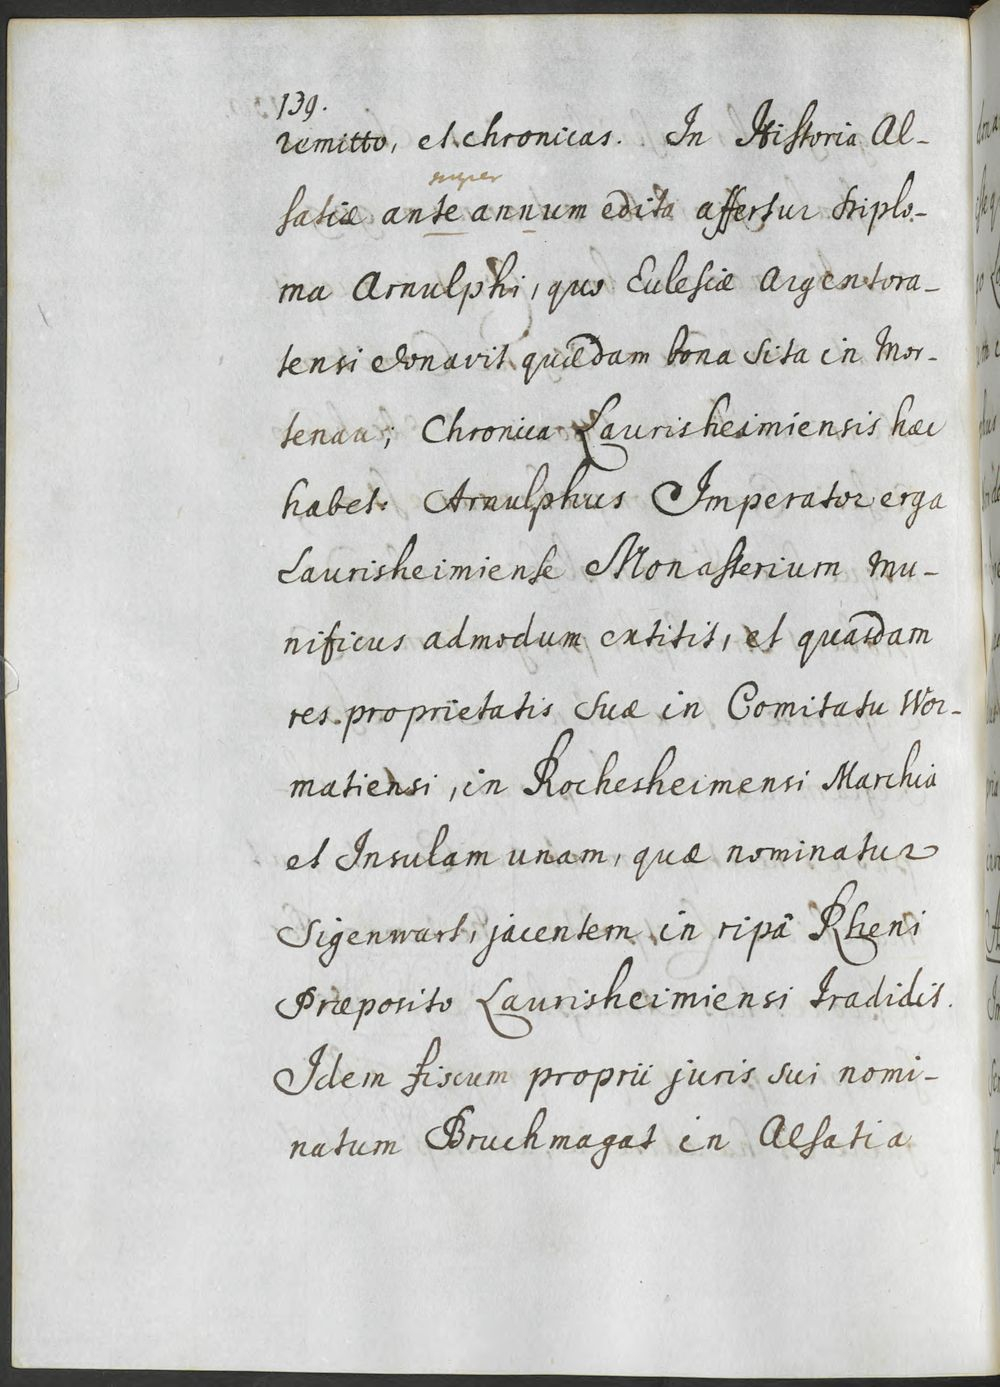 139.
remitto, et chronicas. In Historia Al-
nuper
satiæ ante annum edita affertur diplo-
ma Arnulphi, quo Eulesiæ Argentora-
tensi donavit quædam bona sita in Mor-
tenau; Chronica Laurisheimiensis hæc
habet. Arnulphus Imperator erga
Laurisheimiense Monasterium mu-
nificus admodum extitit, et quasdam
res proprietatis suæ in Comitatu Wor-
matiensi, in Rochesheimensi Marchia
et Insulam unam, quæ nominatur
Sigenwart, jacentem in ripâ Rheni
Præposito Laurisheimiensi tradidit.
Idem fiscum proprii juris sui nomi-
natum Bruchmagat in Alsatia